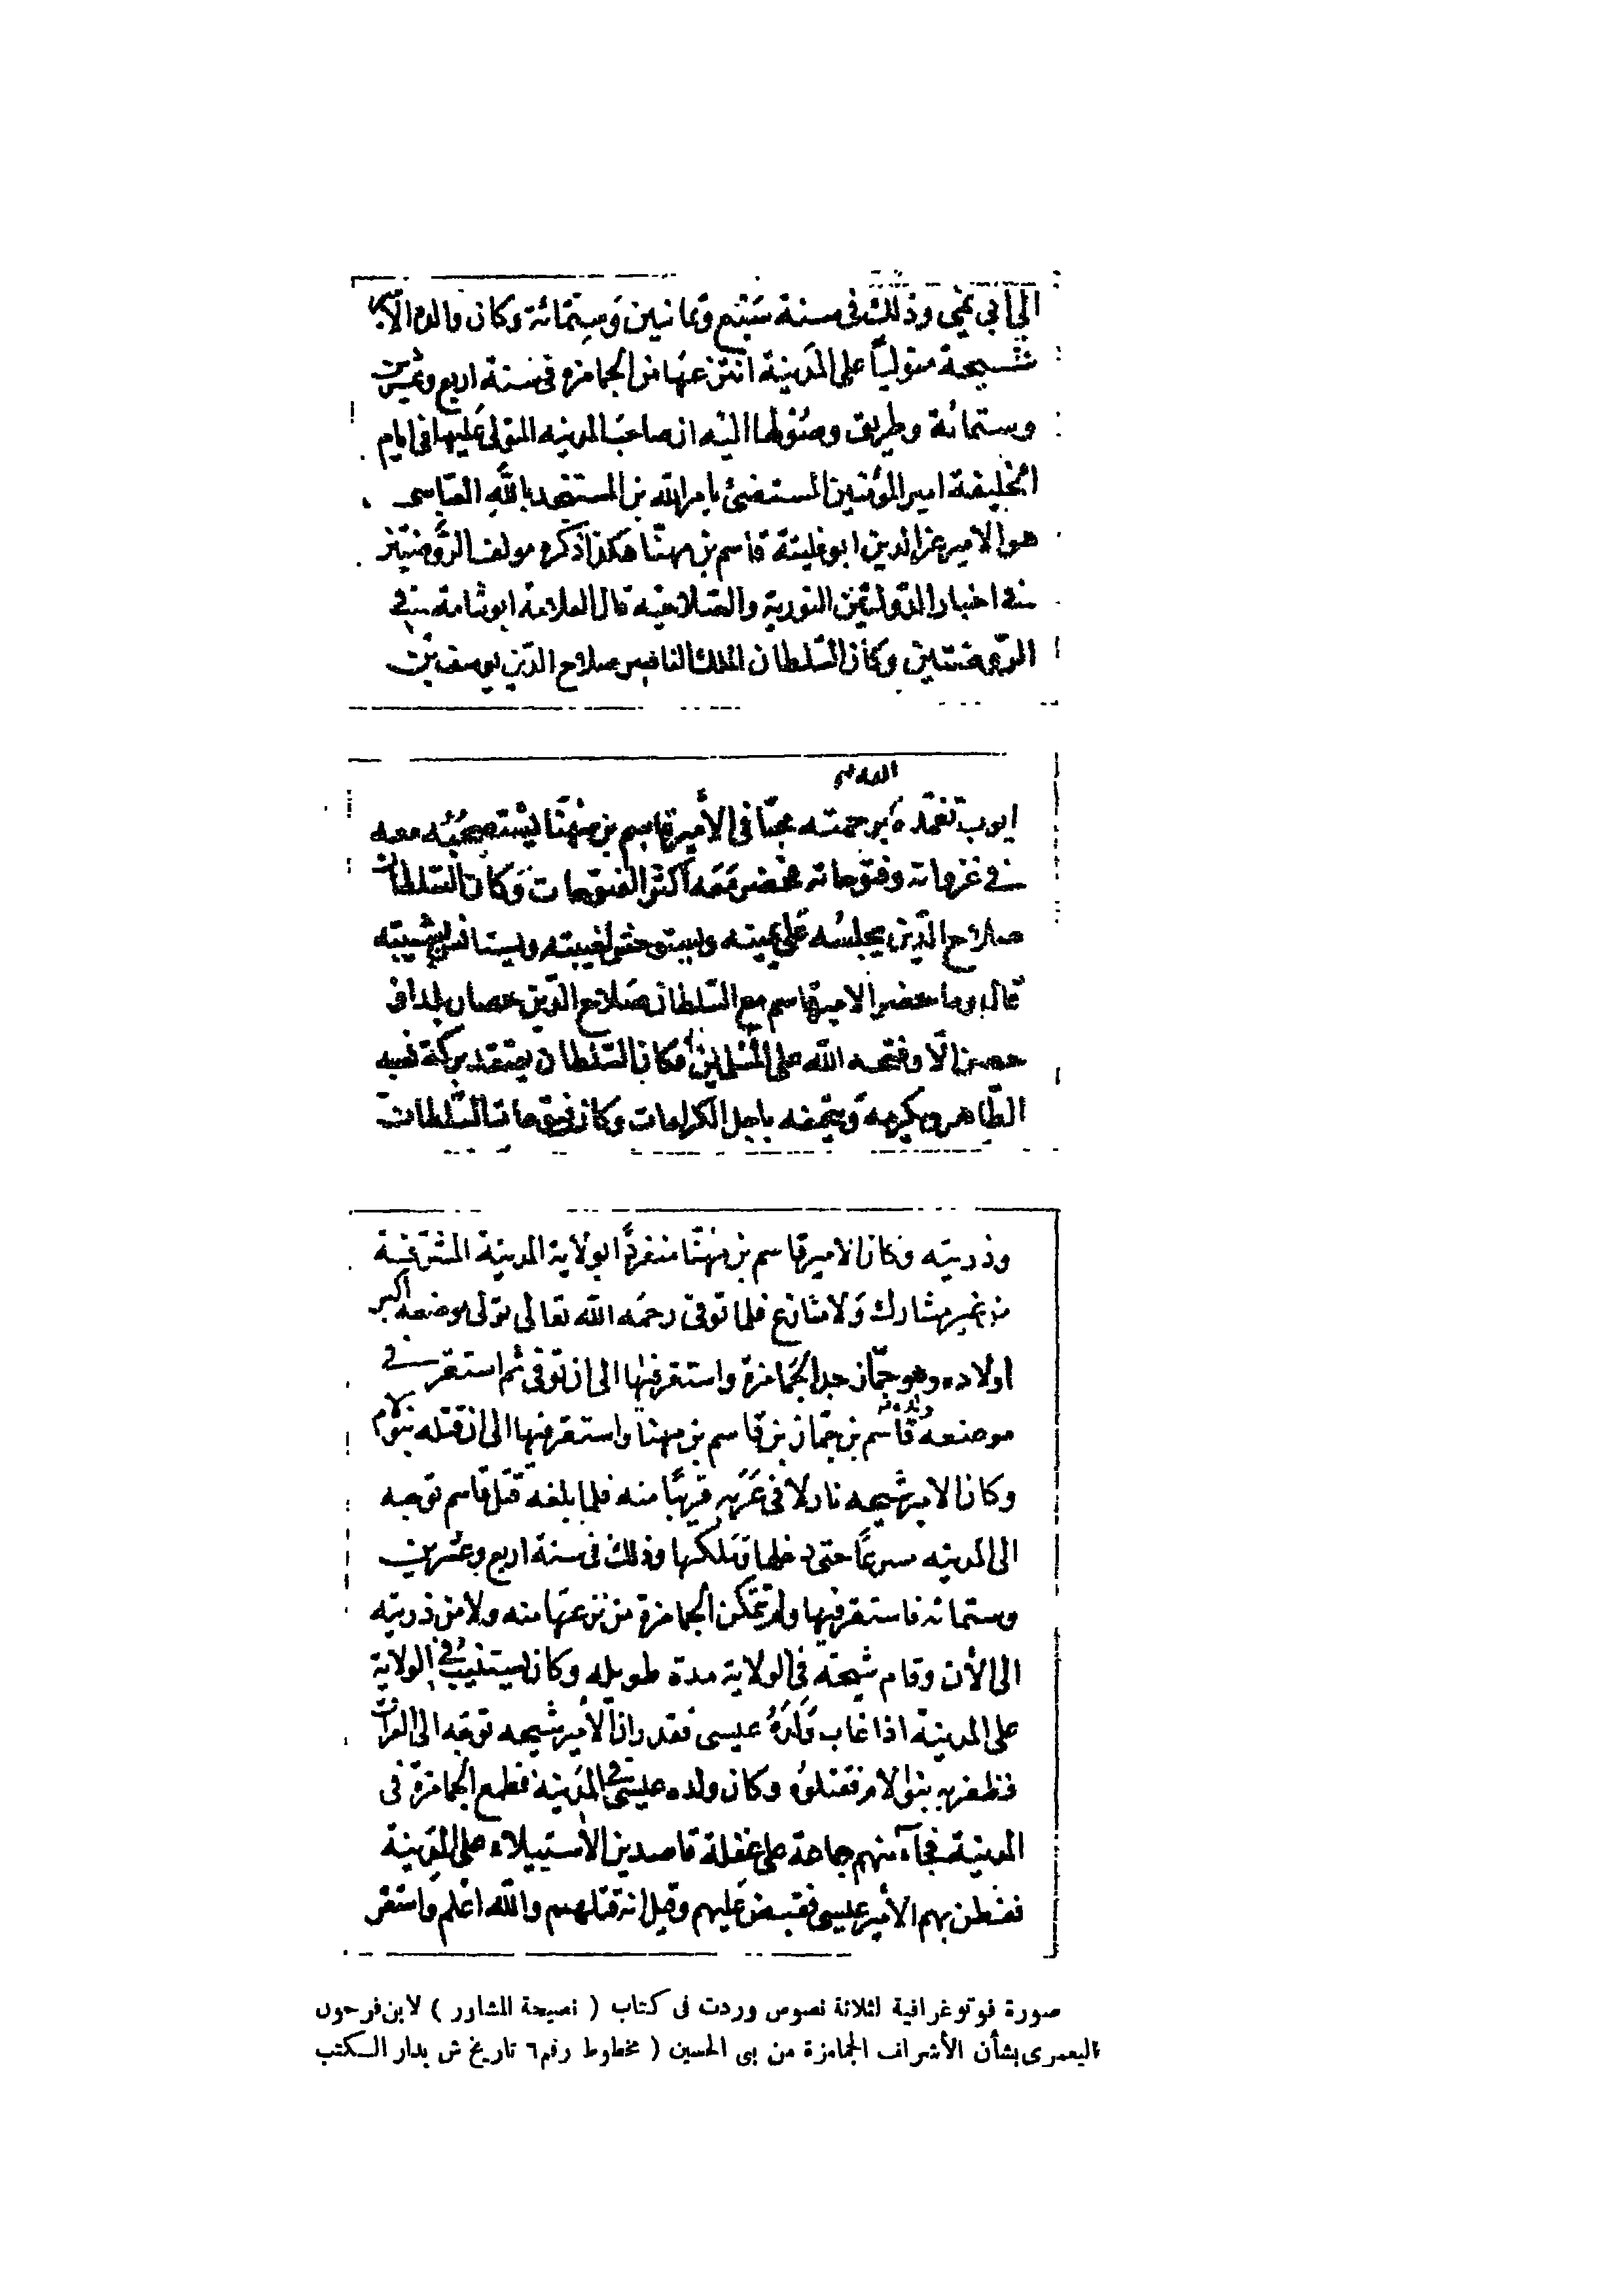 الى أبي نمي وذلك فى سنة سَبْع وَثمانين وَسِتمّائة وَكان والده الامير
شيحة متوليًا على المدَينة انتزعهَا من الجمامزه فى سَنة اربع وعشرين
وستمائة وطريق وصُولها اليْه ان صاحبَ المدينه المتولى عَليها فى ايام
الخليفة امير المؤمنين المستضئ بامر الله بن المستنجد بالله العبّاسى
هو الامير عز الدين ابو فليتة قاسم بن مهنّا هكذا ذكره مولف الرَّوضتين
فى اخبار الدّولتين النورية والصّلاحيّه قال العلامة ابو شامة فى
الرّوضتين وكان السّلطان الملك الناصر صلاح الدّين يوسف بْن
ايوب تغمّده الله برحمته محبّا فى الأمير قاسِم بن مهَنّا يسْتصحُبه معه
فى غزواته وفتوحاته فحضر مَعَه أكثر الفتوحات وَكان السّلطان
صلاح الدّين يجلسُه عَلى يمينه ويستوحش لغيبته ويستانس بشيبته
قال وما حضر الامير قاسم مع السّلطان صَلاح الدّين حصار بلد او
حصن الّا وفتحه الله على المسْلمين فكان السّلطان يعتقد بركة نسبه
الطّاهر ويكرمه وَيتحفه باجل الكرامات وكان فتوحات السّلطان
وذريته وكان الامير قاسم بن مهنّا منفردًا بولاية المدينة المشرّفة
من غير مشارك وَلا منازع فلما توفى رحمَه الله تعالى تولى موضعه أكبر
اولاده وهو جمّاز جد الجَمامزة واستقر فيها الى ان توفى ثم استقر فى
موضعه ولده قاسم بن جمّاز بن قاسم بن مهنا واستقر فيها الى ان قتله بنو لام
وكان الامير شيحه نازلا فى عَرَبه قريبًا منه فلما بلغه قتل قاسم توجه
الى المدينه سريعًا حتى دخلها وَملكها وذلك فى سنة اربع وعشرين
وستمائه فاستقر فيها ولم تتمكن الجمامزة من نزعهَا منه ولا من ذريته
الى الأن وقام شيحة فى الولاية مدة طويله وكان يستنيبُ فى الولاية
على المدينة اذا غاب وَلَدَهُ عيسى فقدر انّ الأمير شيحه توجّه الى العراق
فظفر به بنو لام فقتلوُه وكان ولده عيسى فى المدَينة فطمع الجمامزة فى
المدينة فجآء منهم جماعة على غفلة قاصدين الاستيلاء على المدينة
ففطن بهم الأمير عيسى فقبض عَليهم وقيل انه قتلهم والله اعْلم وَاستقر
صورة فوتوغرافية لثلاثة نصوص وردت فى كتاب ( نصيحة المشاور ) لابن فرحون
اليعمرى بشأن الأشراف الجمامزة من بنى الحسين ( مخطوط رقم ٦ تاريخ ش بدار الكتب